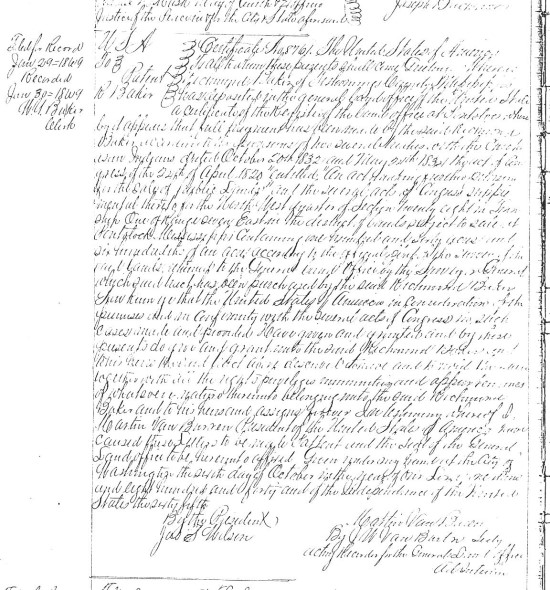 Joseph
Justice of the
U.S.A Certificate No The United States of America
Filed for Record
To
To all to whom these presents shall come Greeting Whereas
Jan 29=1849
Patent Richmond Baker of Tishomingo County Mississippi
Recorded
R Baker has deposited in the general land office of the United States
Jan 30=1849
a certificate of the Register of the land office at Pontotoc where
Baker
Clerk
by it appears that full payment was been made by the said Richmond
Baker
Indians dated October 20th 1832 and May 24th 1834 the act of Con
gress of the 24th of April 1820 entitled "An act making further provision
for the Sale of public lands" and the several acts of Congress supple
mental thereto for the North West quarter of Section twenty eight in Town
ship One of Range seven East in the district of lands subject to sale at
Pontotock Mississippi Containing one hundred and sixty acres and
six hundredths of an acre according to the official plat of the Survey of the
said lands, returned to the General Land Office by the Surveyor General
which said tract has been purchased by the said Richmond Baker
Now know ye that the United States of America in consideration of the
premises and in conformity with the several acts of Congress in such
cases made and provided Have given and granted and by these
presents do give and grant unto the said Richmond Baker and
to his heirs the said tract above described To have and to hold the same
together with all the rights privileges immunities and appurtenances
of whatsoever nature thereunto belonging unto the said Richmond
Baker and to his heirs and assigns forever In testimony whereof I
Martin Van Burren President of the United States of America have
caused these letters to be made Patent and the Seal of the General
Land office to be hereunto affixed Given under my hand at the City of
Washington the sixth day of October in the year of our Lord one thous
and eight hundred and forty and of the Independence of the United
States the sixty fifth
By the President
Martin Van Buren
Jas S Wilson
By M Van Buren Secty
acting Recorder for the General Land Office
ad interim